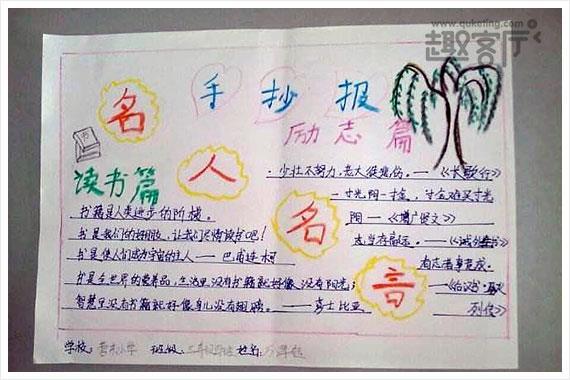 www.quketing.com
趣客厅
名人名言
手抄报
励志篇
读书篇
少壮不努力,老大徒悲伤。——《长歌行》
一寸光阴一寸金,寸金难买寸光
阴——《增广贤文》
志当存高远。——《诫外甥书》
有志者事竟成。
——《后汉书·
列传》
书籍是人类进步的阶梯。
书是我们的好朋友,让我们尽情读书吧!
书是使人们成为宇宙的主人——巴甫连柯
书是全世界的营养品,生活里没有书籍就好像没有阳光;
智慧里没有书籍就好像鸟儿没有翅膀。——莎士比亚
学校: 小学 班级: 三年级 姓名: